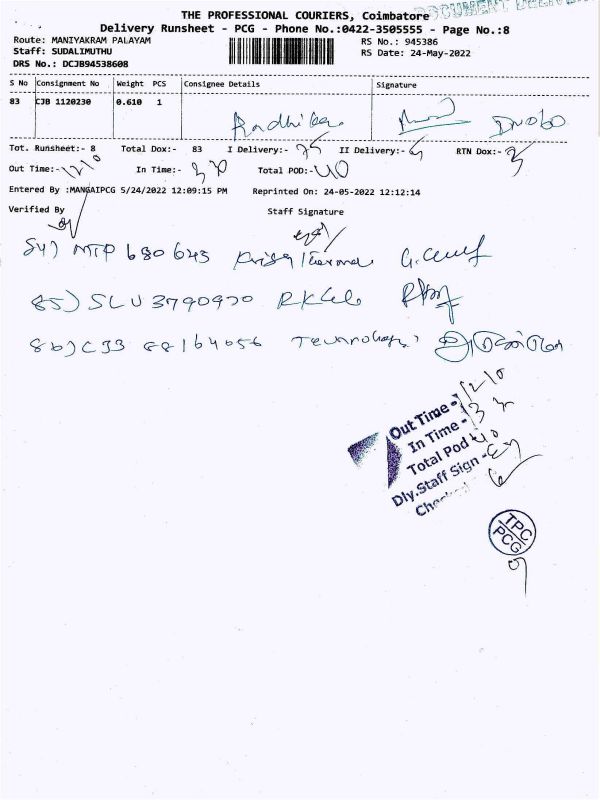 THE PROFESSIONAL COURIERS, Coimbatore
DOCUMENT
Delivery Runsheet - PCG - Phone No.:0422-3505555 - Page No.:8
Route: MANIYAKRAM PALAYAM RS No.: 945386
Staff: SUDALIMUTHU RS Date: 24-May-2022
DRS No.: DCJB94538608
S No Consignment No Weight PCS Consignee Details Signature
83 CJB 1120230 0.610 1 Radhika
Tot. Runsheet:- 8 Total Dox:- 83 I Delivery:- 75 II Delivery:- RTN Dox:- 3
Out Time:- 12/10 In Time:- 3 Total POD:- 40
Entered By :MANGAIPCG 5/24/2022 12:09:15 PM Reprinted On: 24-05-2022 12:12:14
Verified By Staff Signature
84) MTP 680643
85) SLU 3790970
86) CJB 88164056
Out Time - 12-10
In Time - 3
Total Pod 40
Dly.Staff Sign -
TPC
PCG